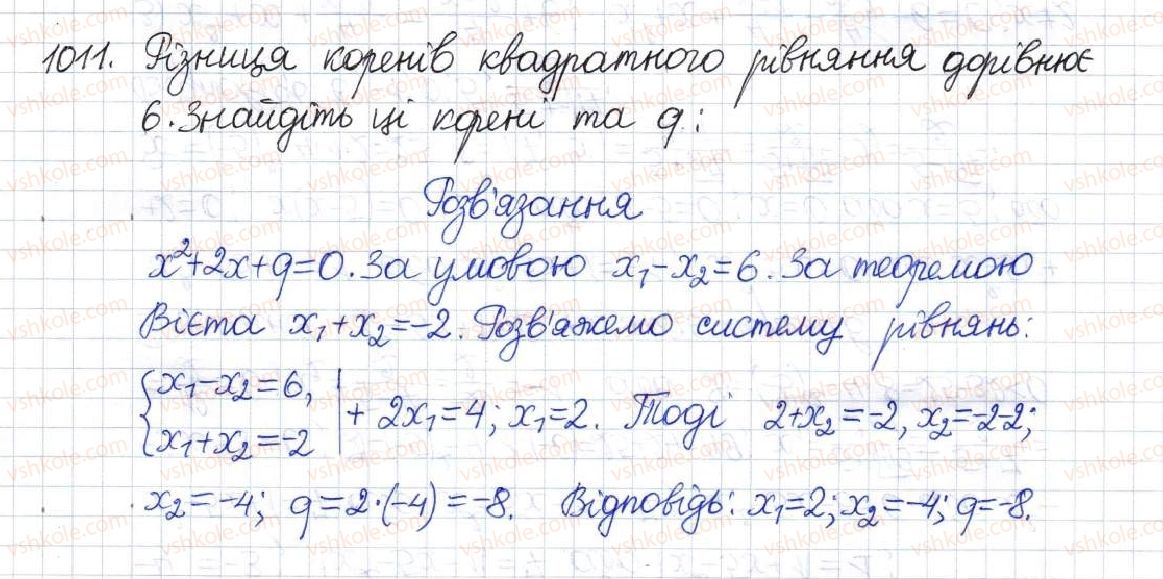 1011. Різниця коренів квадратного рівняння дорівнює
6. Знайдіть ці корені та q:
Розв'язання
x²+2x+q=0. За умовою x₁-x₂=6. За теоремою
Вієта x₁+x₂=-2. Розв'яжемо систему рівнянь:
{x₁-x₂=6, x₁+x₂=-2 | + 2x₁=4; x₁=2. Тоді 2+x₂=-2, x₂=-2-2;
x₂=-4; q=2·(-4)=-8. Відповідь: x₁=2; x₂=-4; q=-8.
vshkole.com